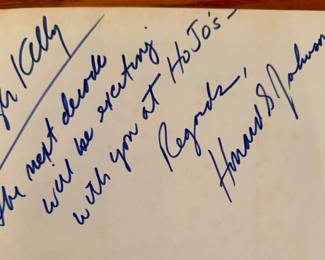 Kelly
The next decade
will be exciting
with you at HoJo's-
Regards,
Howard B. Johnson